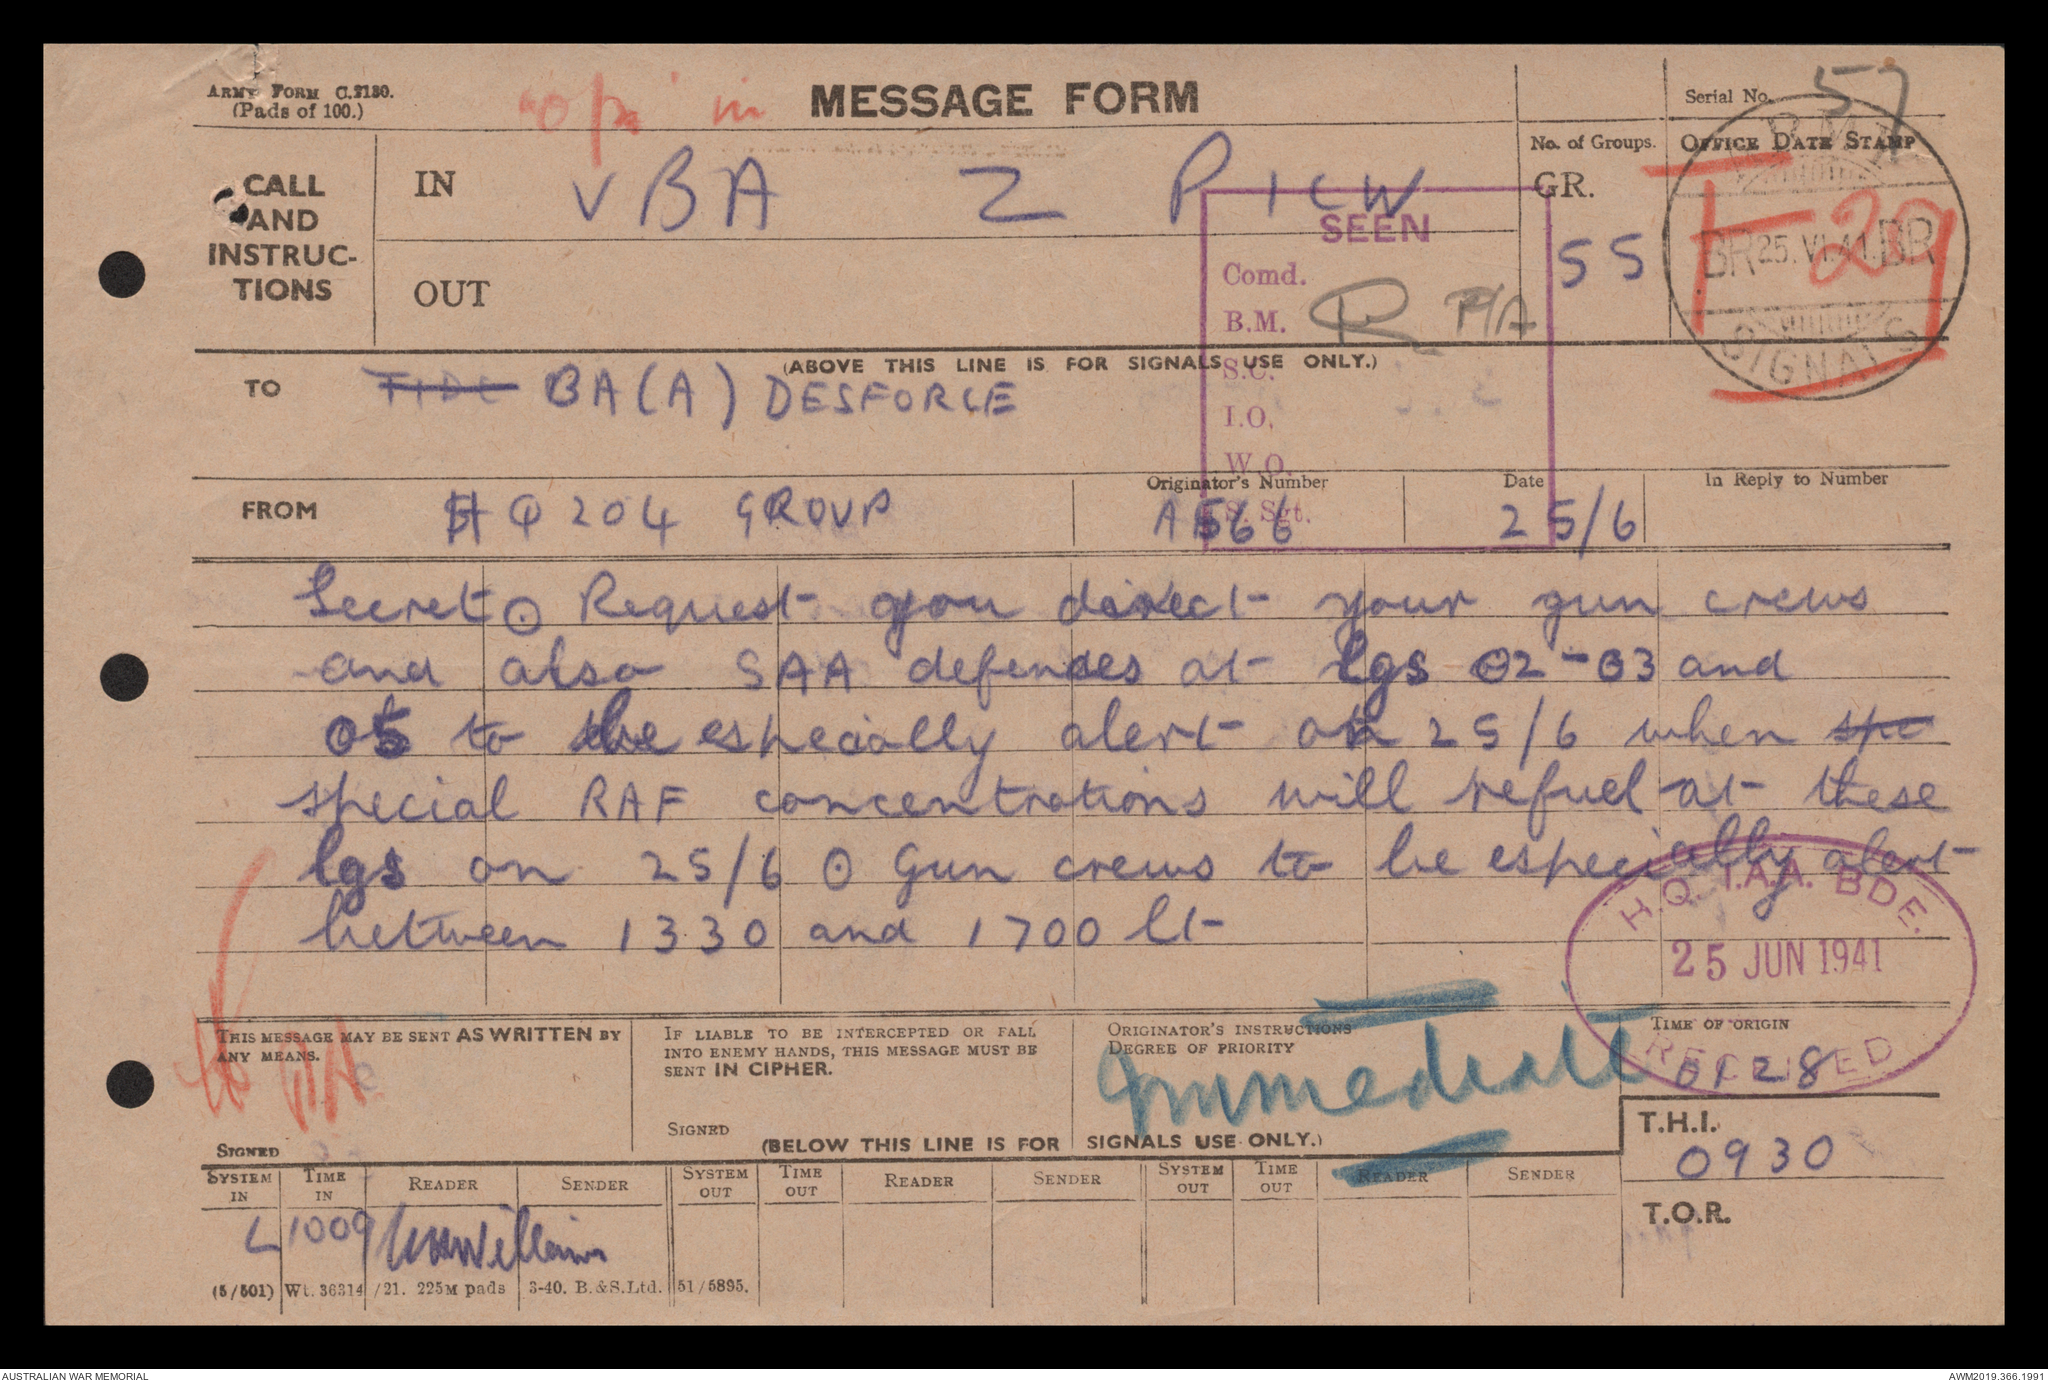 ARMY FORM C.2130.
(Pads of 100.)
in
MESSAGE FORM
Serial No. 57
CALL AND INSTRUC-TIONS
IN VBA Z PICW
OUT
No. of Groups.
GR. 55
OFFICE DATE STAMP
BR 25.VI.41. BR
SIGNALS
F 29
SEEN
Comd.
B.M. P/A
S.C.
I.O.
W.O.
S. Sgt.
(ABOVE THIS LINE IS FOR SIGNALS USE ONLY.)
TO BA(A) DESFORCE
FROM HQ 204 GROUP
Originator's Number A566
Date 25/6
In Reply to Number
Secret ⊙ Request you direct your gun crews
and also SAA defences at lgs 02-03 and
05 to be especially alert on 25/6 when spe
special RAF concentrations will refuel at these
lgs on 25/6 ⊙ Gun crews to be especially alert
between 1330 and 1700 lt
H.Q. 1.A.A. BDE.
25 JUN 1941
RECEIVED
THIS MESSAGE MAY BE SENT AS WRITTEN BY
ANY MEANS.
SIGNED
IF LIABLE TO BE INTERCEPTED OR FALL
INTO ENEMY HANDS, THIS MESSAGE MUST BE
SENT IN CIPHER.
SIGNED
ORIGINATOR'S INSTRUCTIONS
DEGREE OF PRIORITY
Immediate
TIME OF ORIGIN
0128
P.A.
(BELOW THIS LINE IS FOR SIGNALS USE ONLY.)
T.H.I. 0930
T.O.R.
SYSTEM IN TIME IN READER SENDER SYSTEM OUT TIME OUT READER SENDER SYSTEM OUT TIME OUT READER SENDER
L 1009 Williams
(5/501) Wt. 36314/21. 225M pads 3-40. B.&S.Ltd. 51/5895.
AUSTRALIAN WAR MEMORIAL
AWM2019.366.1991